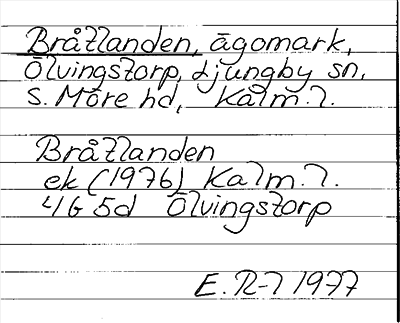 Bråtlanden, ägomark,
Ölvingstorp, Ljungby sn,
S. Möre hd, Kalm. l.
Bråtlanden
ek (1976) Kalm. l.
4G 5d Ölvingstorp
E. R-l 1977